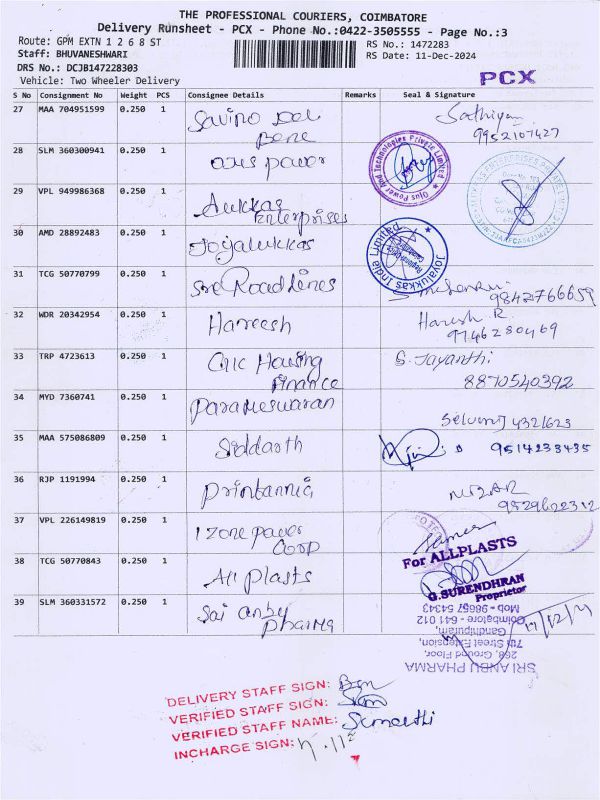 THE PROFESSIONAL COURIERS, COIMBATORE
Delivery Runsheet - PCX - Phone No.:0422-3505555 - Page No.:3
Route: GPM EXTN 1 2 6 8 ST
RS No.: 1472283
Staff: BHUVANESHWARI
RS Date: 11-Dec-2024
DRS No.: DCJB147228303
Vehicle: Two Wheeler Delivery
PCX
S No Consignment No Weight PCS Consignee Details Remarks Seal & Signature
27 MAA 704951599 0.250 1 Savino Del Bene Sathiyan
9952107427
28 SLM 360300941 0.250 1 Ojus power
Ojus Power And Technologies Private Limited
29 VPL 949986368 0.250 1 Aukkas Enterprises
30 AMD 28892483 0.250 1 Joyalukkas
Joyalukkas India Limited
31 TCG 50770799 0.250 1 Sre Road Lines
9842766659
32 WDR 20342954 0.250 1 Hareesh Haresh R.
9746280469
33 TRP 4723613 0.250 1 Housing Finance S. Jayanthi
8870540392
34 MYD 7360741 0.250 1 Parameswaran
35 MAA 575086809 0.250 1 Siddarth 9514233435
36 RJP 1191994 0.250 1 Printannia
37 VPL 226149819 0.250 1 1 zone power Corp
For ALLPLASTS
38 TCG 50770843 0.250 1 All plasts
G.SURENDHRAN
Proprietor
39 SLM 360331572 0.250 1 Sai anbu pharma
SRI ANBU PHARMA
268, Ground Floor,
7th Street Extension,
Gandhipuram,
Coimbatore - 641 012
Mob -98657 54343
DELIVERY STAFF SIGN:
VERIFIED STAFF SIGN:
VERIFIED STAFF NAME: Sumathi
INCHARGE SIGN: